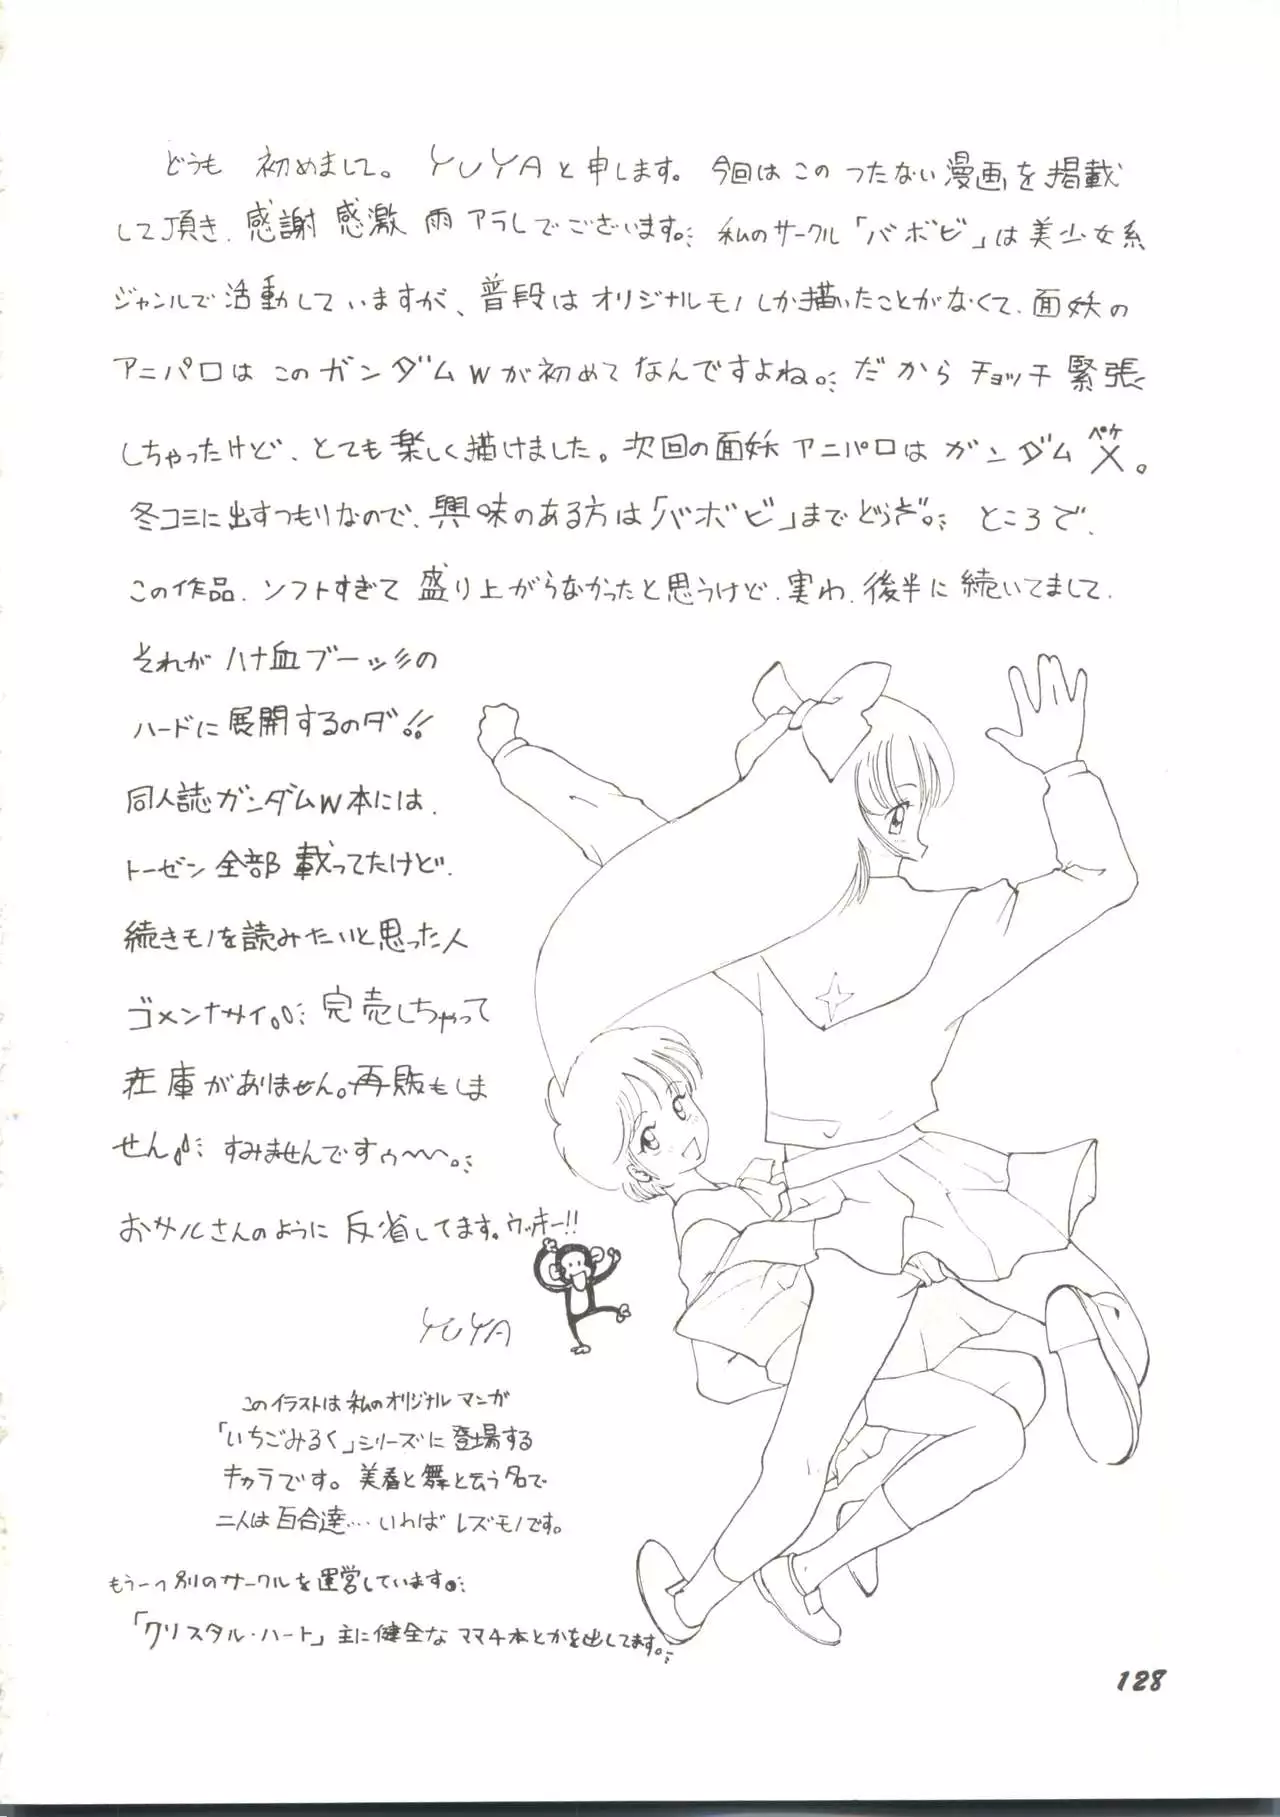 どうも 初めまして。 YUYAと申します。今回はこの つたない漫画を掲載
して頂き、感謝 感激 雨アラしでございます。私のサークル「バボビ」は美少女系
ジャンルで活動していますが、普段はオリジナルモノしか描いたことがなくて、面妖の
アニパロはこのガンダムWが初めてなんですよね。だから チョッチ緊張
しちゃったけど、とても楽しく描けました。次回の面妖アニパロは ガンダム X。
ペケ
冬コミに出すつもりなので、興味のある方は「バボビ」までどうぞ。ところで、
この作品、ソフトすぎて 盛り上がらなかったと思うけど、実わ、後半に続いてまして、
それが ハナ血ブーッの
ハードに展開するのダ!!
同人誌ガンダムW本には、
トーゼン 全部 載ってたけど、
続きモノを読みたいと思った人
ゴメンナサイ。完売しちゃって
在庫がありません。再販もしま
せん すみませんですぅ〜〜。
おサルさんのように 反省してます。ウッキー!!
YUYA
このイラストは私のオリジナルマンガ
「いちごみるく」シリーズに登場する
キャラです。美春と舞と云う名で
二人は百合達…いわばレズモノです。
もう一つ別のサークルを運営しています。
「クリスタル・ハート」主に健全なママ4本とかを出してます。
128